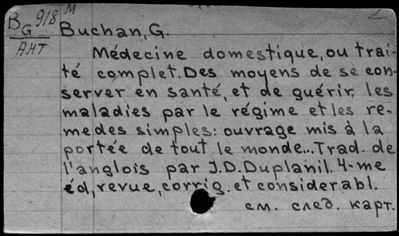 BG 918 M
АНТ
Buchan, G.
Médecine domestique, ou trai-
té complet. Des moyens de se con-
server en santé, et de guérir, les
maladies par le régime et les re-
medes simples: ouvrage mis à la
portée de tout le monde... Trad. de
l'anglois par J.D. Duplanil. 4-me
éd, revue, corrig. et considerabl.
см. след. карт.